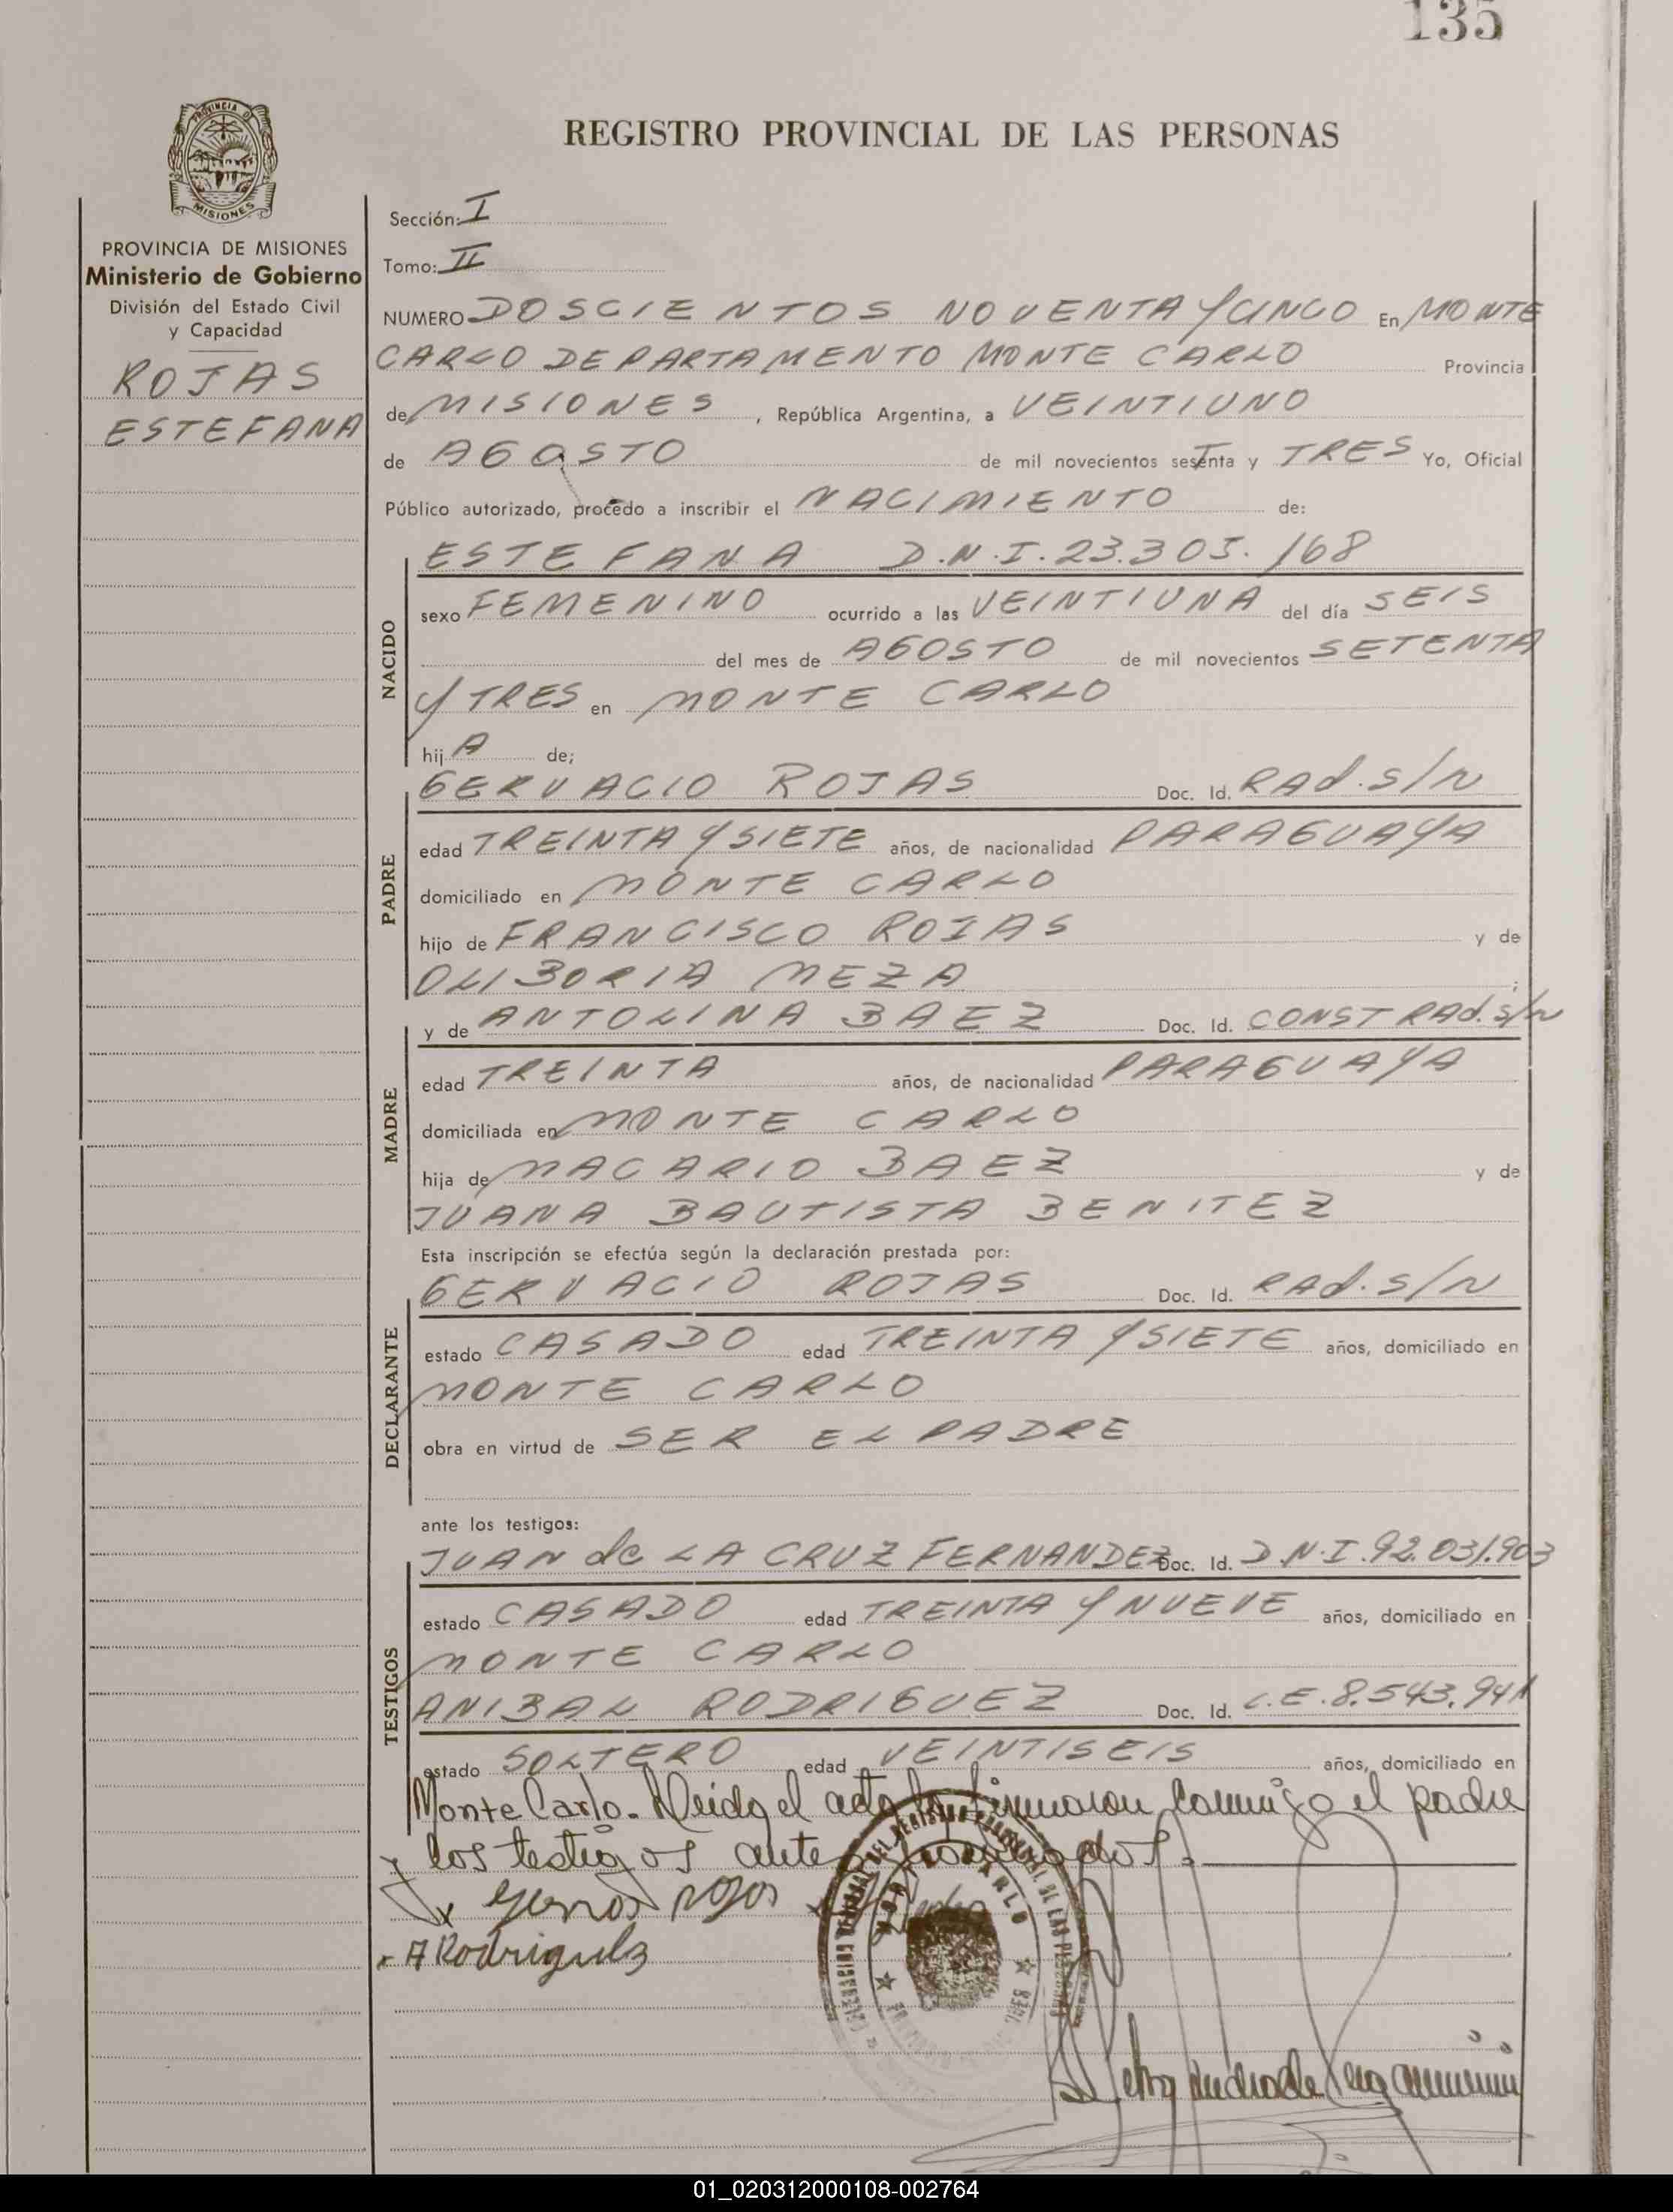 135
REGISTRO PROVINCIAL DE LAS PERSONAS
PROVINCIA DE
MISIONES
PROVINCIA DE MISIONES
Ministerio de Gobierno
División del Estado Civil
y Capacidad
ROJAS
ESTEFANA
Sección: I
Tomo: II
NUMERO DOSCIENTOS NOVENTA Y CINCO En MONTE
CARLO DEPARTAMENTO MONTE CARLO Provincia
de MISIONES, República Argentina, a VEINTIUNO
de AGOSTO de mil novecientos setenta y TRES Yo, Oficial
Público autorizado, procedo a inscribir el NACIMIENTO de:
NACIDO
ESTEFANA D.N.I. 23.305.168
sexo FEMENINO ocurrido a las VEINTIUNA del día SEIS
del mes de AGOSTO de mil novecientos SETENTA
Y TRES en MONTE CARLO
hij A de;
PADRE
GERVACIO ROJAS Doc. Id. RAd. S/N
edad TREINTA Y SIETE años, de nacionalidad PARAGUAYA
domiciliado en MONTE CARLO
hijo de FRANCISCO ROJAS y de
OLIBORIA MEZA;
MADRE
y de ANTOLINA BAEZ Doc. Id. CONST RAd. S/N
edad TREINTA años, de nacionalidad PARAGUAYA
domiciliada en MONTE CARLO
hija de MACARIO BAEZ y de
JUANA BAUTISTA BENITEZ
Esta inscripción se efectúa según la declaración prestada por:
DECLARANTE
GERVACIO ROJAS Doc. Id. RAd. S/N
estado CASADO edad TREINTA Y SIETE años, domiciliado en
MONTE CARLO
obra en virtud de SER EL PADRE
ante los testigos:
TESTIGOS
JUAN de LA CRUZ FERNANDEZ Doc. Id. D.N.I. 92.031.903
estado CASADO edad TREINTA Y NUEVE años, domiciliado en
MONTE CARLO
ANIBAL RODRIGUEZ Doc. Id. L.E. 8.543.941
estado SOLTERO edad VEINTISEIS años, domiciliado en
Monte Carlo. Leida el acta la firmaron conmigo el padre
y los testigos antes nombrados.
rojos
A Rodriguez
MONTE CARLO
01_020312000108-002764